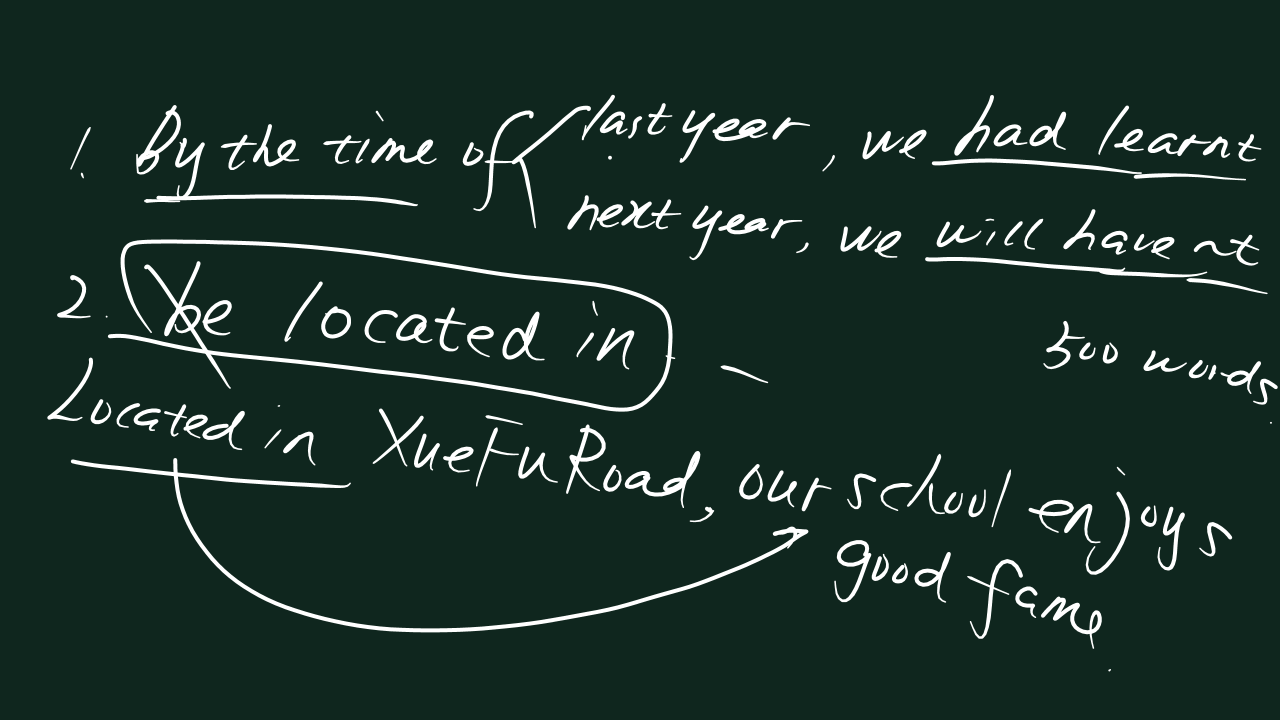 1. By the time of last year, we had learnt
next year, we will have
500 words.
2. be located in
Located in XueFu Road, our school enjoys
good fame.